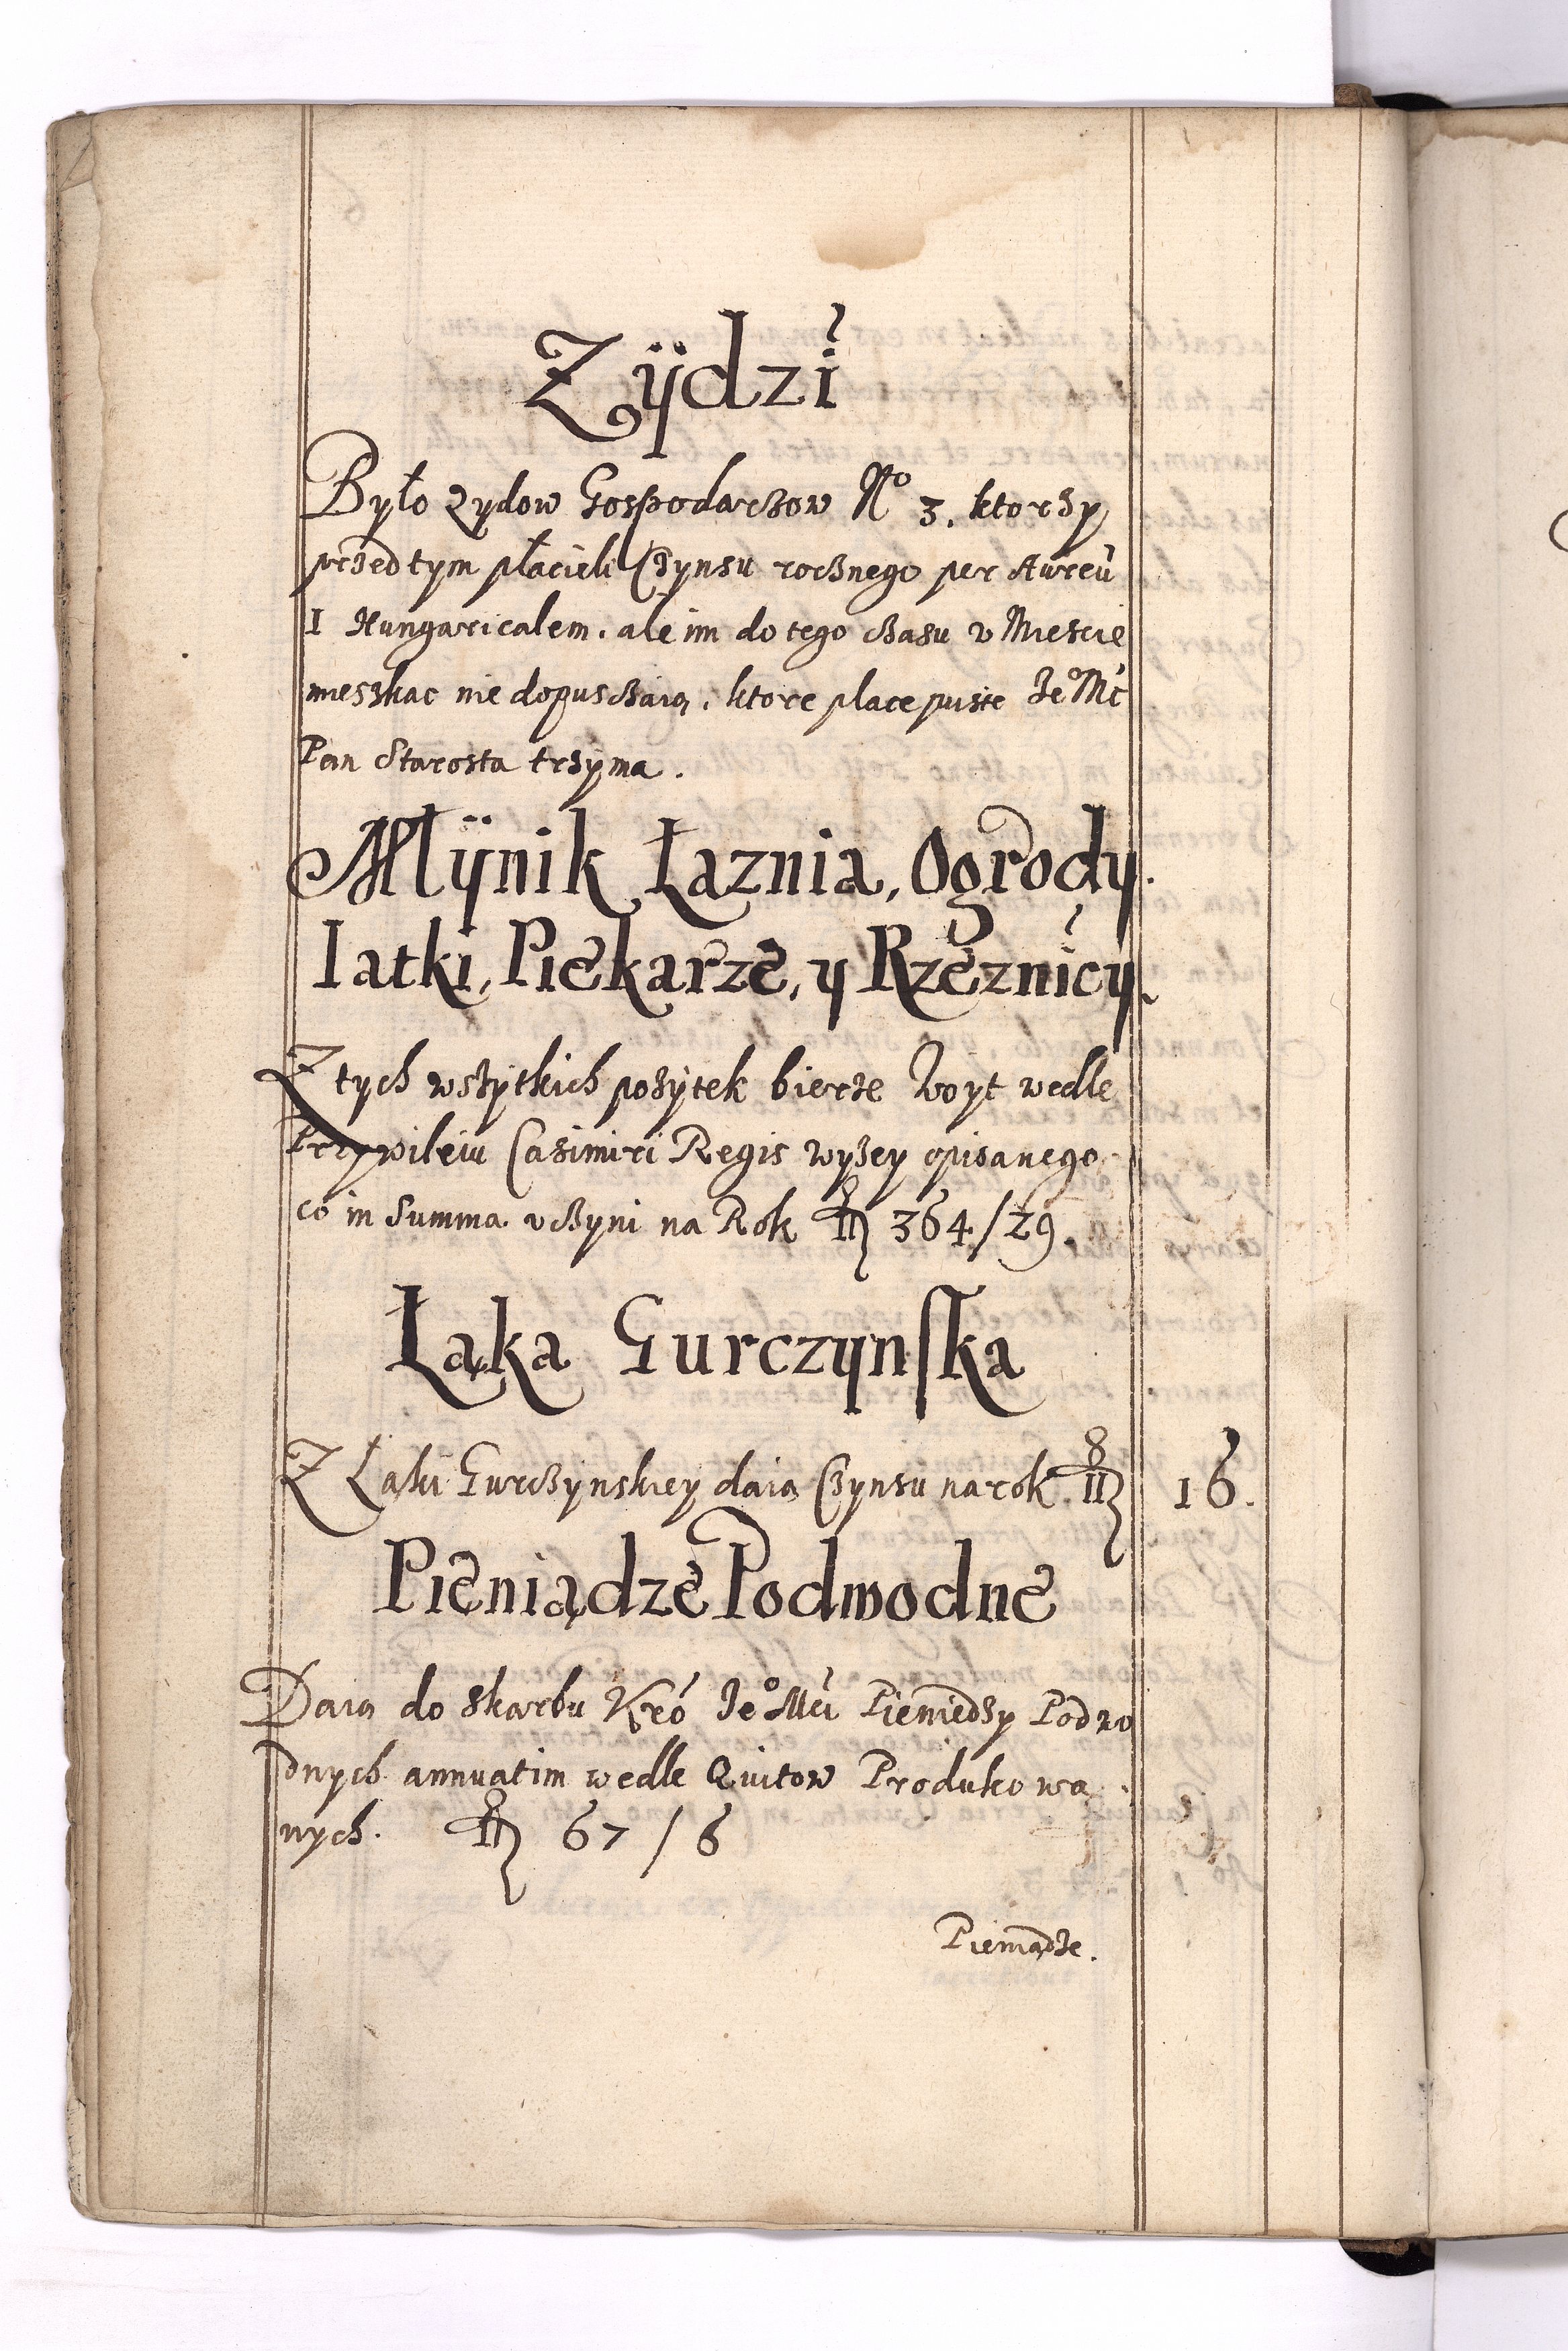 Zÿdzi
Było zydow Gospodarzow No 3. ktorzy
przed tym płacieli Czynsu rocznego per Aureū
1 Hungaricalem. ale im do tego czasu v Miescie
mieszkac nie dopuszczaią. ktore place puste Jeo Mć
Pan Starosta trzyma.
Młÿnik Łaznia, Ogrody.
Iatki, Piekarze, y Rzeznicy.
Z tych wszytkich pozytek bierze Woyt wedle
Przywileiu Casimiri Regis wyzey opisanego
co in Summa vczyni na Rok fl 364/29.
Łąka Gurczynska
Z Łąki Gurczynskiey daią Czynsu na rok fl 16.
Pieniądze Podwodne
Daią do Skarbu Kró Jeo Mći Pieniedzy Podwo
dnych annuatim wedle Quitow Produkowa
nych. fl 67/6
Pieniądze.